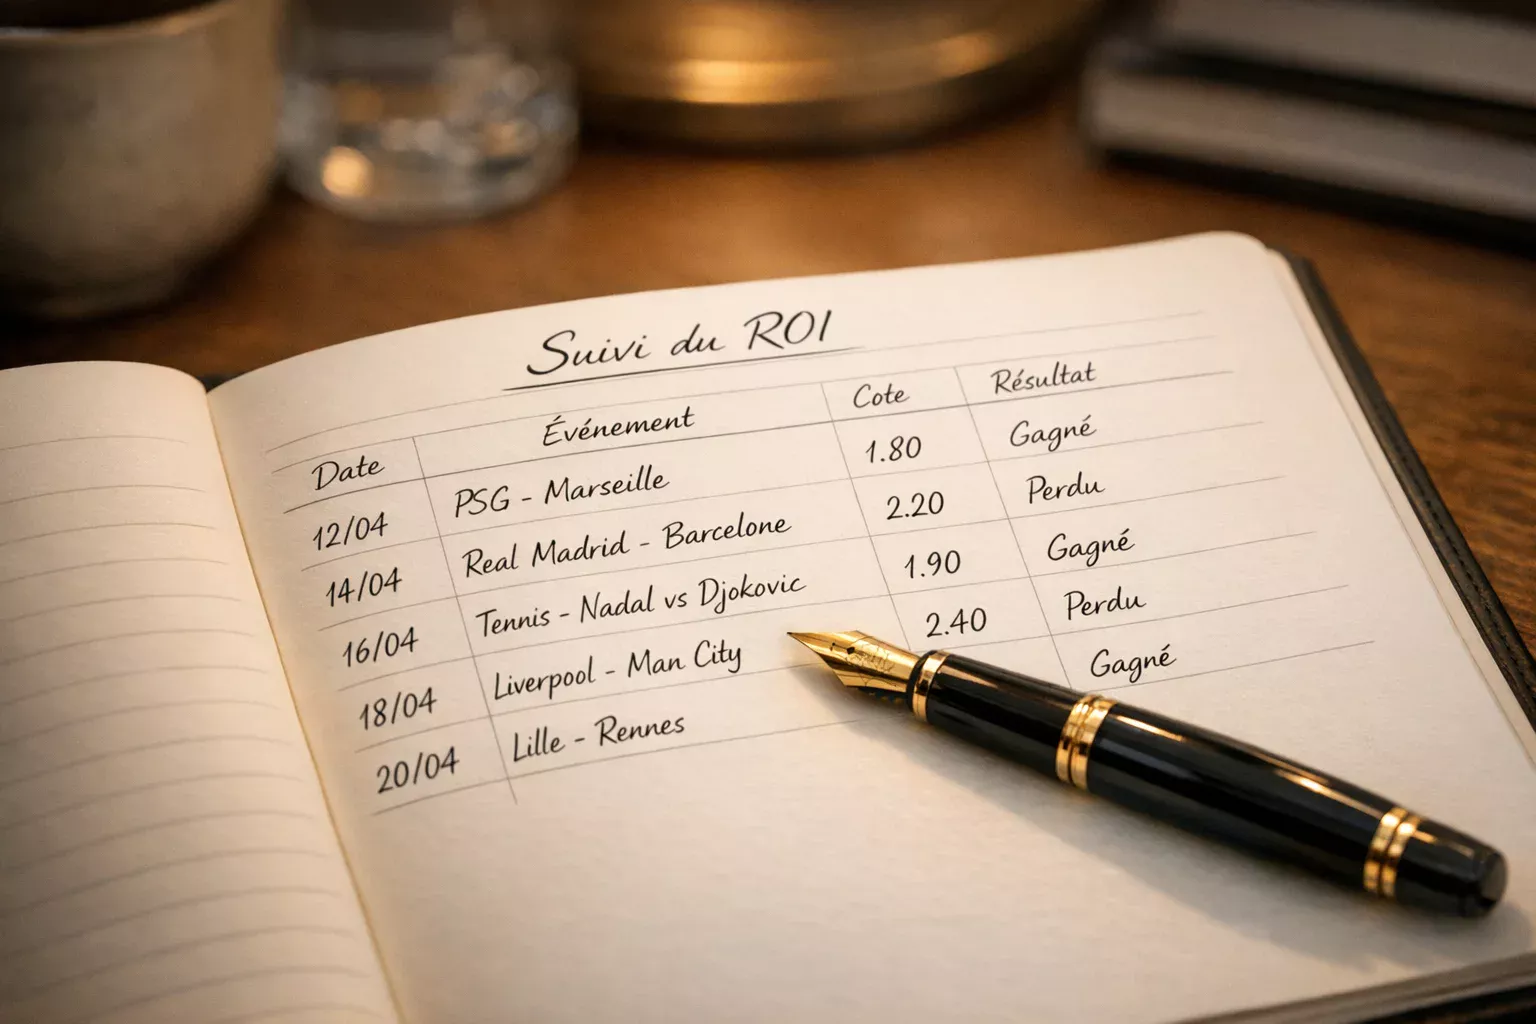 Suivi du ROI
Date Événement Cote Résultat
12/04 PSG - Marseille 1.80 Gagné
14/04 Real Madrid - Barcelone 2.20 Perdu
16/04 Tennis - Nadal vs Djokovic 1.90 Gagné
18/04 Liverpool - Man City 2.40 Perdu
20/04 Lille - Rennes Gagné